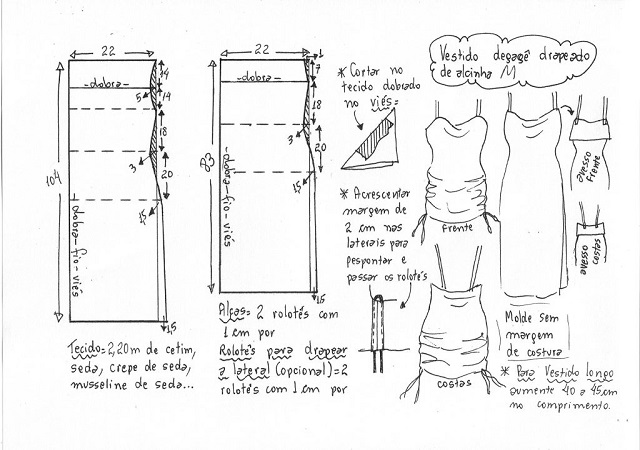 Vestido degagê drapeado
de alcinha M
22
22
1
-dobra-
-dobra-
14
5
14
18
3
20
1,5
15
104
dobra-fio-viés
7
18
3
20
1,5
15
-dobra-fio-viés
* Cortar no
tecido dobrado
no viés=
* Acrescentar
margem de
2 cm nas
laterais para
pespontar e
passar os rolotês
frente
costas
avesso
frente
avesso
costas
Tecido=2,20m de cetim,
seda, crepe de seda,
musseline de seda...
Alças= 2 rolotês com
1 cm por
Rolotês para drapear
a lateral (opcional)=2
rolotês com 1 cm por
Molde sem
margem
de costura
* Para Vestido longo
aumente 40 a 45cm
no comprimento.